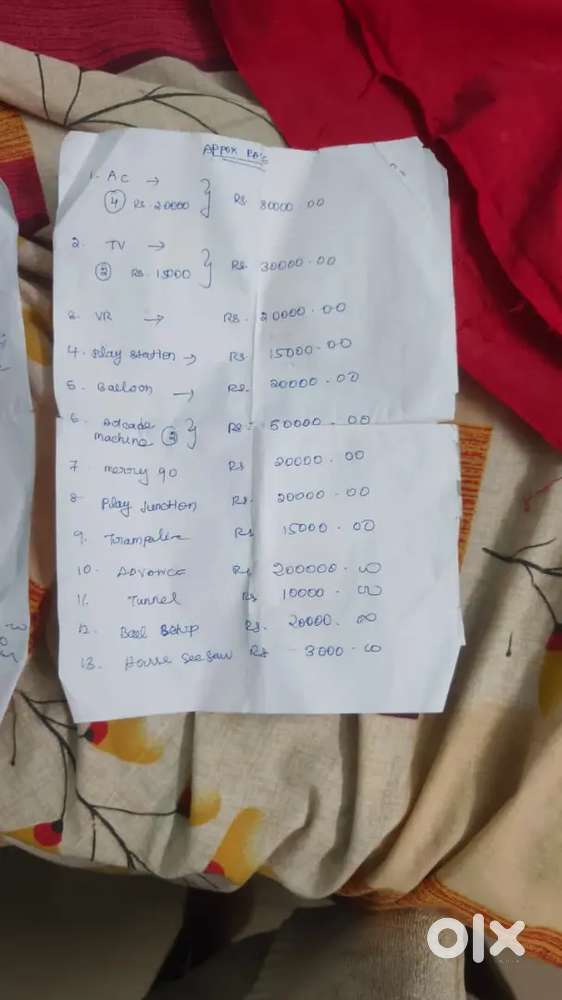 APPOX
1. AC →
④ Rs. 20000 } Rs. 80000.00
2. TV →
② Rs. 15000 } Rs. 30000.00
3. VR → Rs. 20000.00
4. Play station → Rs 15000.00
5. Balloon → Rs. 20000.00
6. Arcade
machine ③ } Rs. 50000.00
7. merry go Rs 20000.00
8. Play Junction Rs. 20000.00
9. Rs 15000.00
10. ADVANCE Rs 200000.00
11. Tunnel Rs 10000.00
12. Rs. 20000.00
13. see saw Rs 3000.00
olx